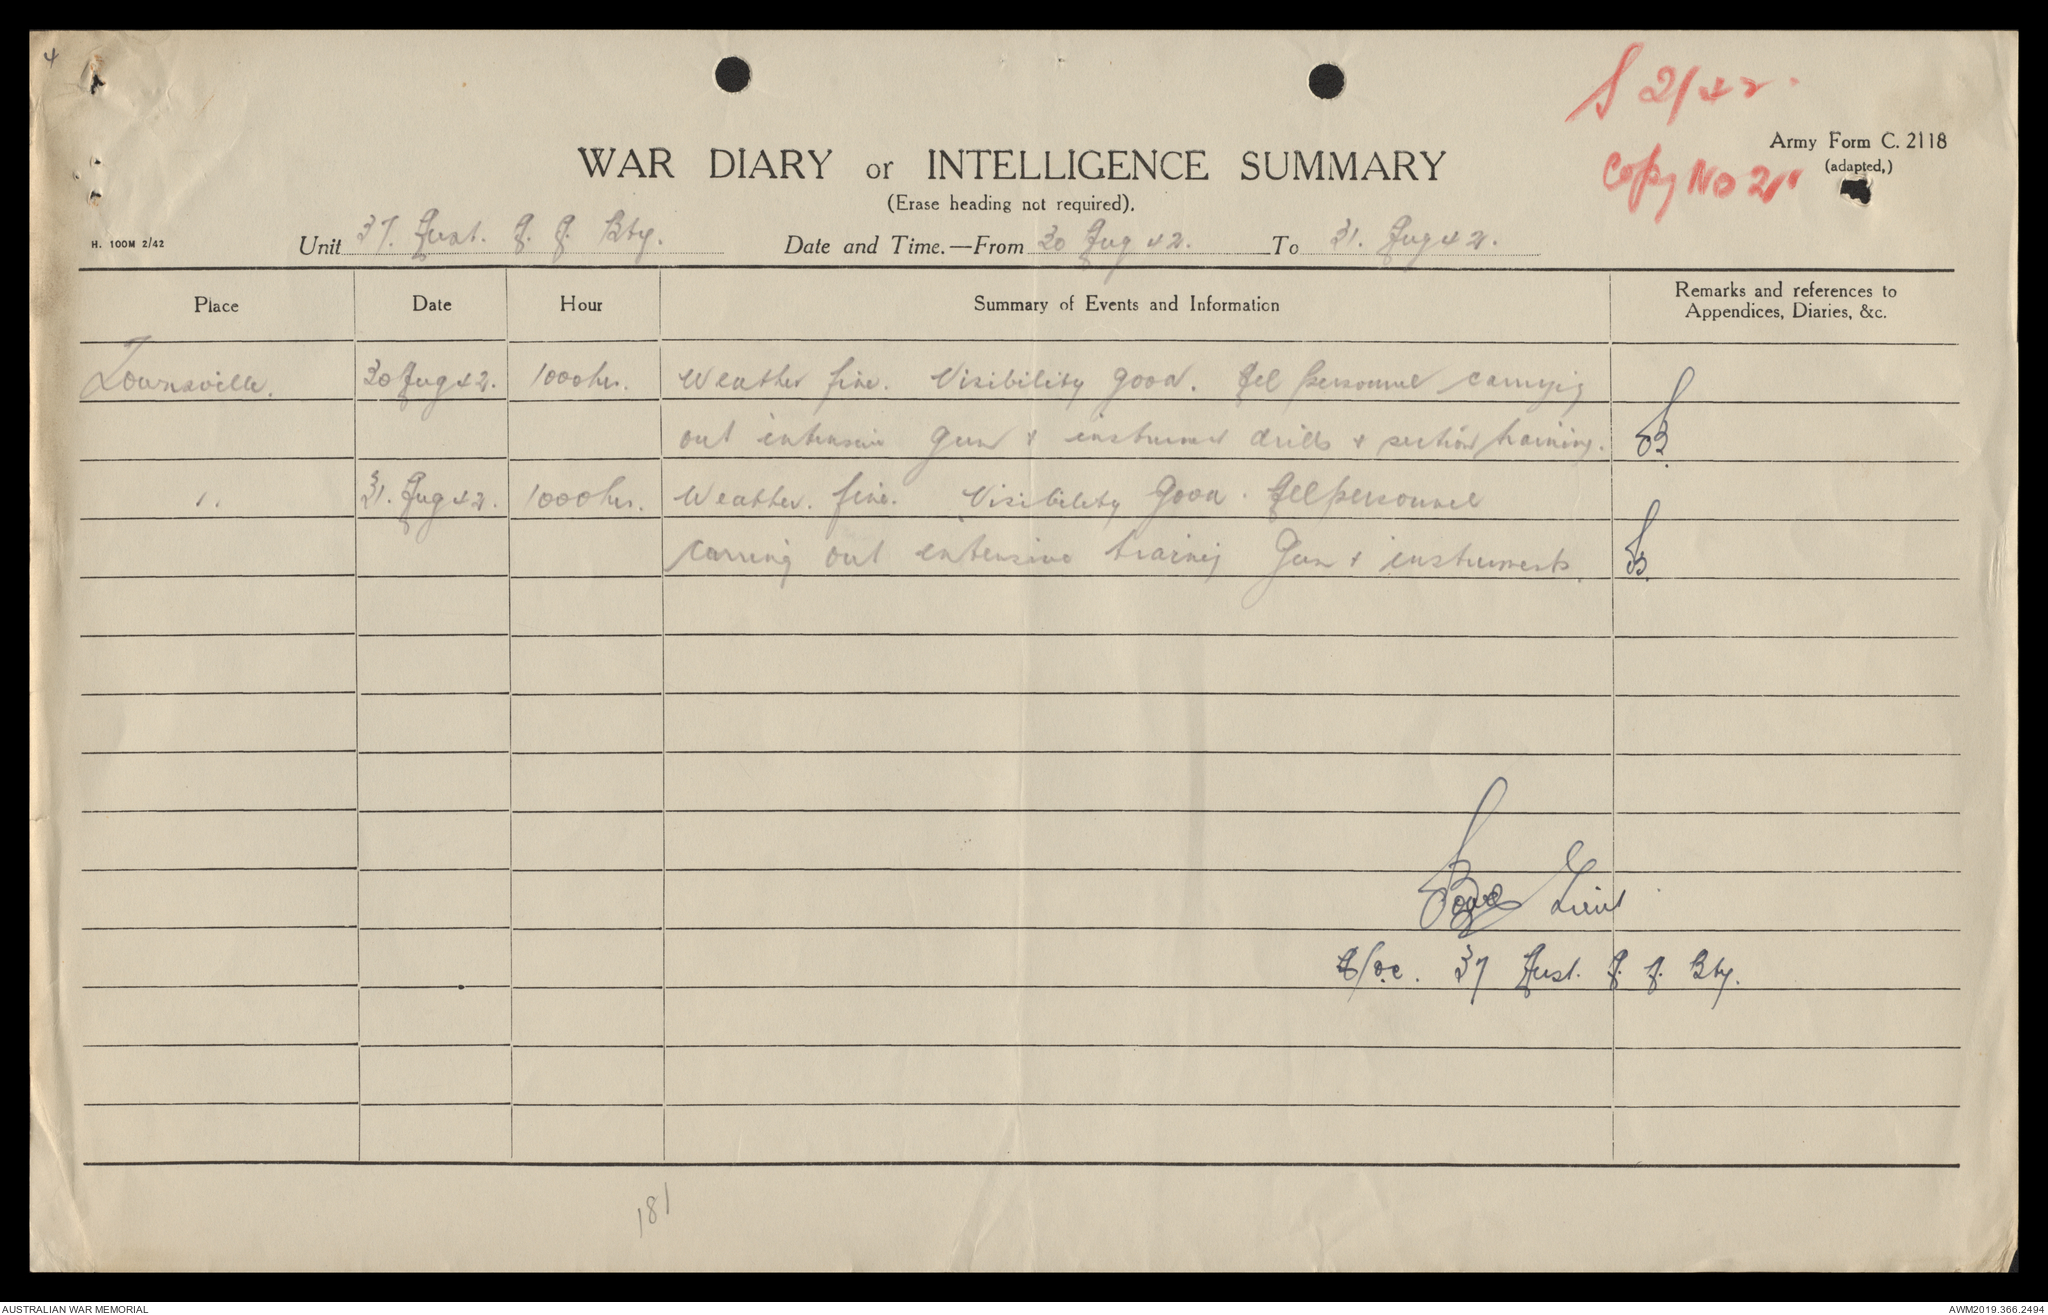 4
S 2/42.
Copy No 21
Army Form C. 2118
(adapted,)
WAR DIARY or INTELLIGENCE SUMMARY
(Erase heading not required).
H. 100M 2/42
Unit 37. Aust. A. A. Bty. Date and Time.—From 30 Aug 42. To 31. Aug 42.
Place Date Hour Summary of Events and Information Remarks and references to
Appendices, Diaries, &c.
Townsville. 30 Aug 42. 1000hrs. Weather fine. Visibility good. All personnel carrying
out intensive gun & instrument drills & section training.
". 31. Aug 42. 1000hrs. Weather. fine. Visibility good. All personnel
carring out intensive training Gun & instruments.
Lieut
A/oc. 37 Aust. A. A. Bty.
181
AUSTRALIAN WAR MEMORIAL
AWM2019.366.2494